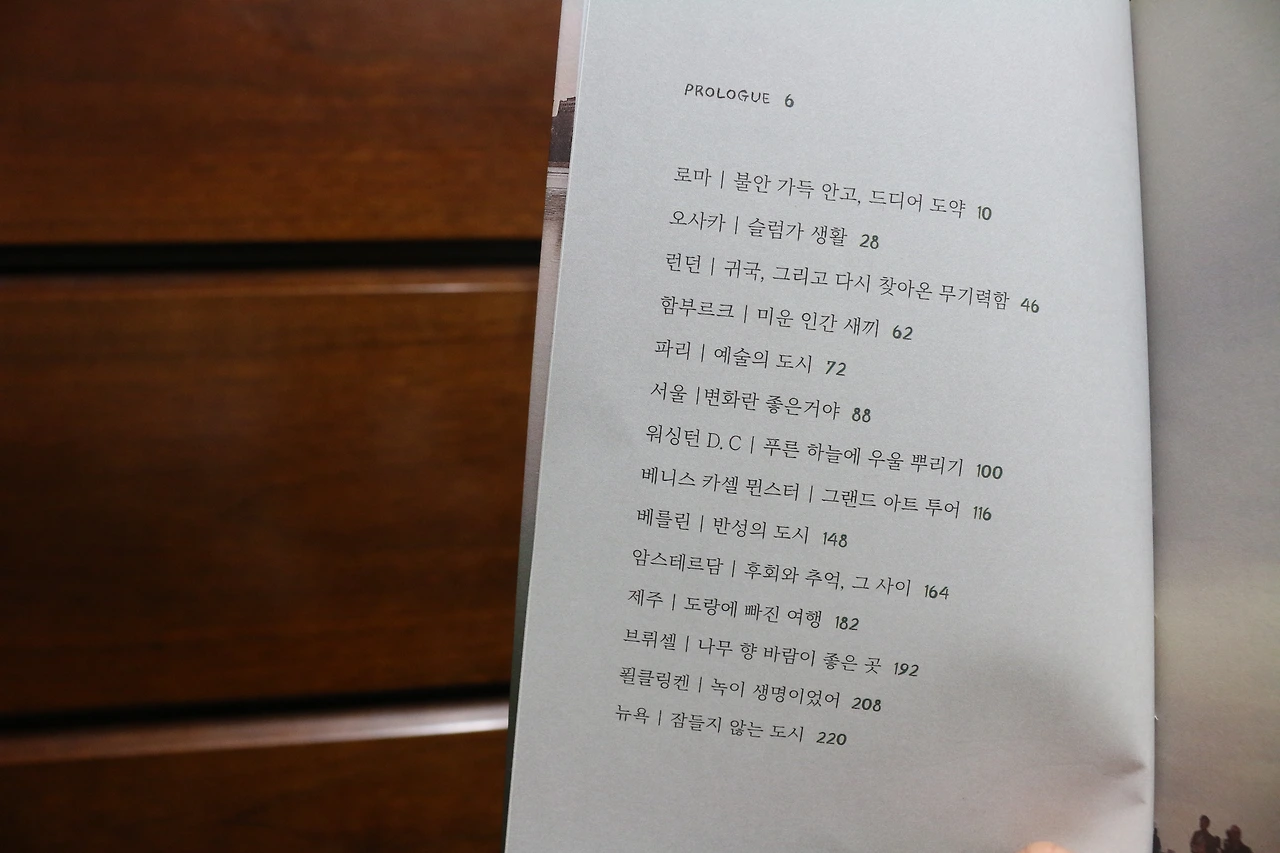 PROLOGUE 6
로마 | 불안 가득 안고, 드디어 도약 10
오사카 | 슬럼가 생활 28
런던 | 귀국, 그리고 다시 찾아온 무기력함 46
함부르크 | 미운 인간 새끼 62
파리 | 예술의 도시 72
서울 |변화란 좋은거야 88
워싱턴 D.C | 푸른 하늘에 우울 뿌리기 100
베니스 카셀 뮌스터 | 그랜드 아트 투어 116
베를린 | 반성의 도시 148
암스테르담 | 후회와 추억, 그 사이 164
제주 | 도랑에 빠진 여행 182
브뤼셀 | 나무 향 바람이 좋은 곳 192
푈클링켄 | 녹이 생명이었어 208
뉴욕 | 잠들지 않는 도시 220